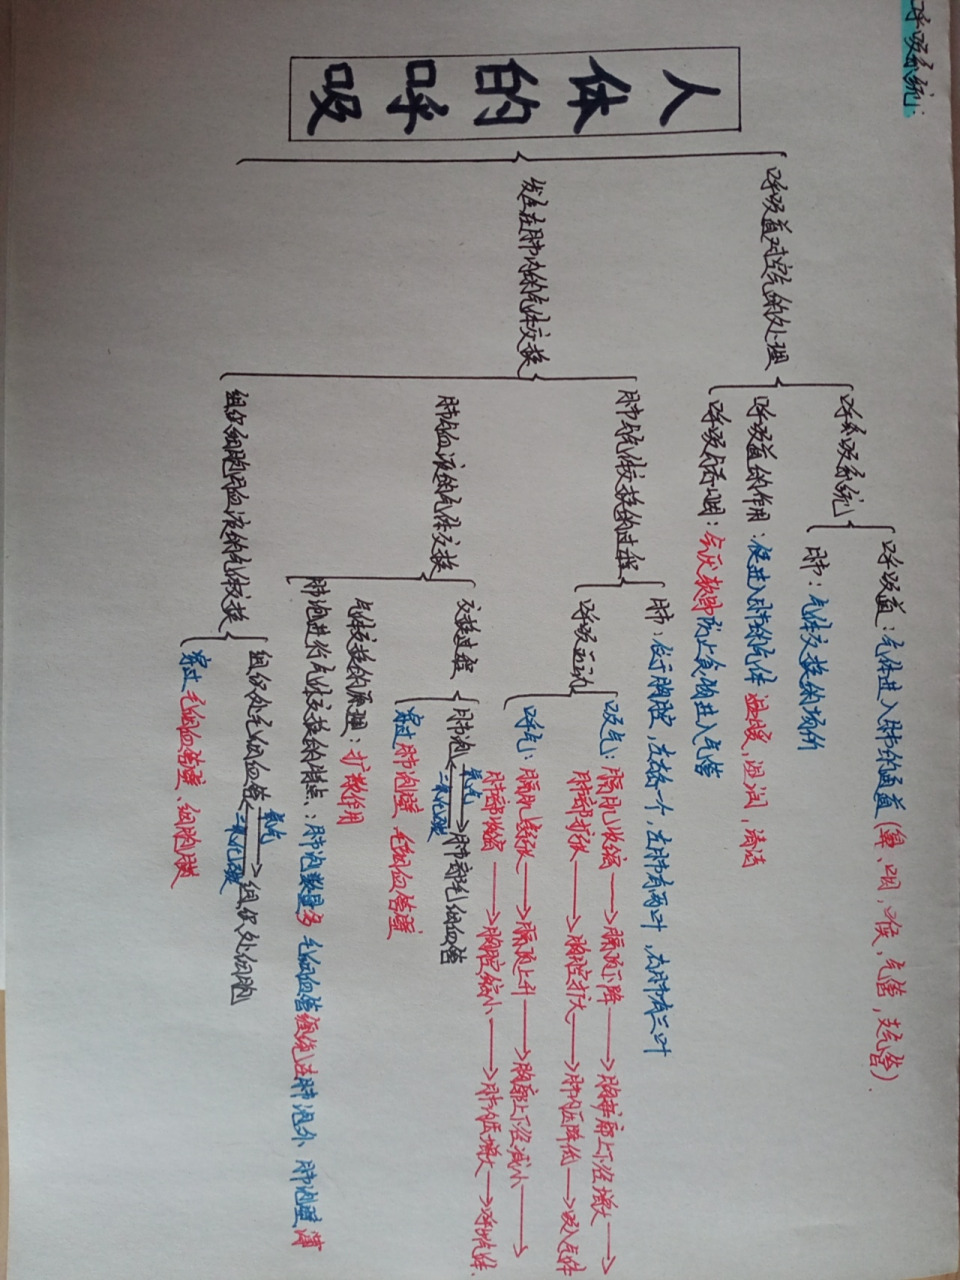 呼吸系统:
人体的呼吸
呼吸道对空气的处理
呼吸系统
呼吸道:气体进入肺的通道(鼻、咽、喉、气管,支气管).
肺:气体交换的场所
呼吸道的作用:使进入肺的气体温暖,湿润,清洁
呼吸与吞咽:会厌软骨防止食物进入气管
发生在肺内的气体交换
肺与气体交换的过程
肺:位于胸腔,左右各一个,左肺有两叶,右肺有三叶
呼吸运动
吸气:膈肌收缩→膈顶下降→胸廓上下径增大→
肺部扩张→胸腔扩大→肺内压降低→吸入气体
呼气:膈肌舒张→膈顶上升→胸廓上下径减小→
肺部收缩→胸腔缩小→肺内压增大→呼出气体.
肺与血液的气体交换
交换过程
肺泡 氧气 二氧化碳 肺部毛细血管
穿过肺泡壁、毛细血管壁
气体交换的原理:扩散作用
肺泡进行气体交换的特点:肺泡数量多 毛细血管缠绕在肺泡外 肺泡壁薄
组织细胞与血液的气体交换
组织处毛细血管 氧气 二氧化碳 组织处细胞
穿过毛细血管壁、细胞膜